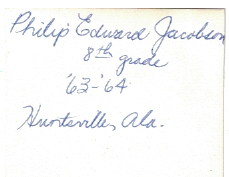 Philip Edward Jacobson
8th grade
'63-'64
Huntsville, Ala.